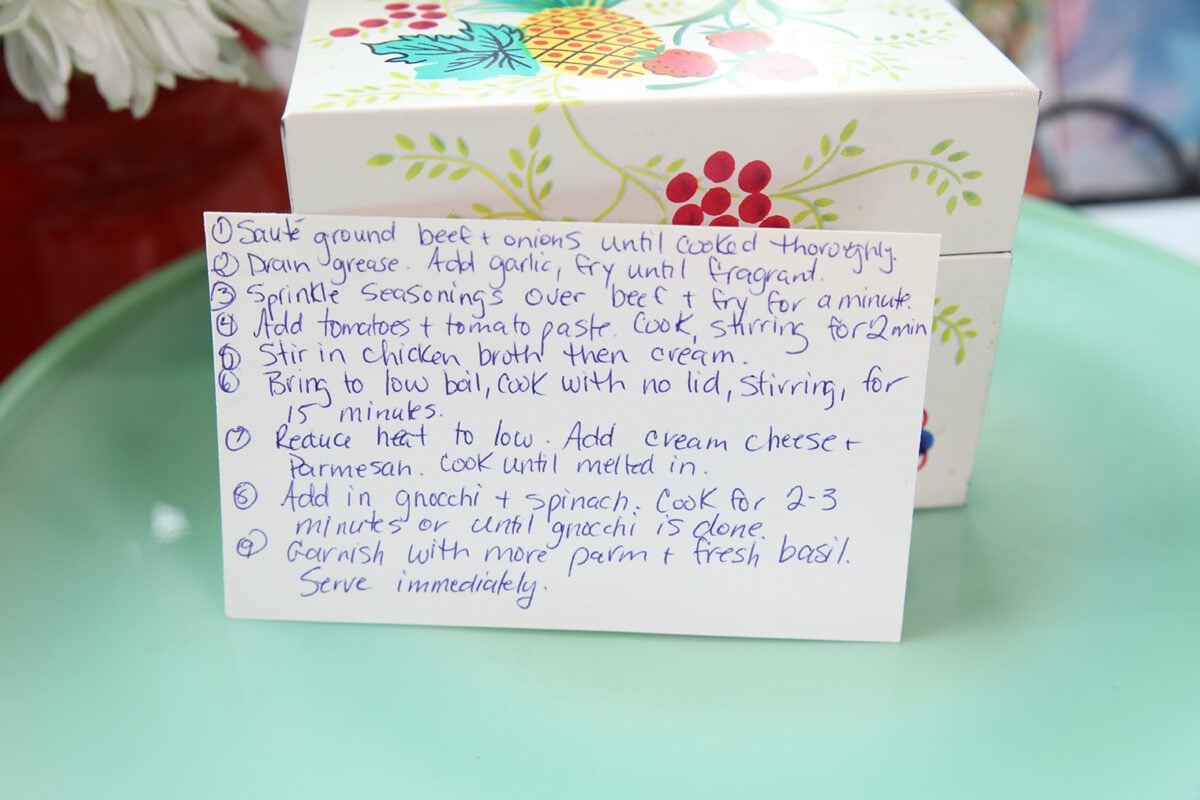 ① Sauté ground beef + onions until cooked thoroughly.
② Drain grease. Add garlic, fry until fragrant.
③ Sprinkle seasonings over beef + fry for a minute.
④ Add tomatoes + tomato paste. Cook, stirring for 2 min
⑤ Stir in chicken broth then cream.
⑥ Bring to low boil, cook with no lid, stirring, for
15 minutes.
⑦ Reduce heat to low. Add cream cheese +
Parmesan. Cook until melted in.
⑧ Add in gnocchi + spinach. Cook for 2-3
minutes or until gnocchi is done.
⑨ Garnish with more parm + fresh basil.
Serve immediately.